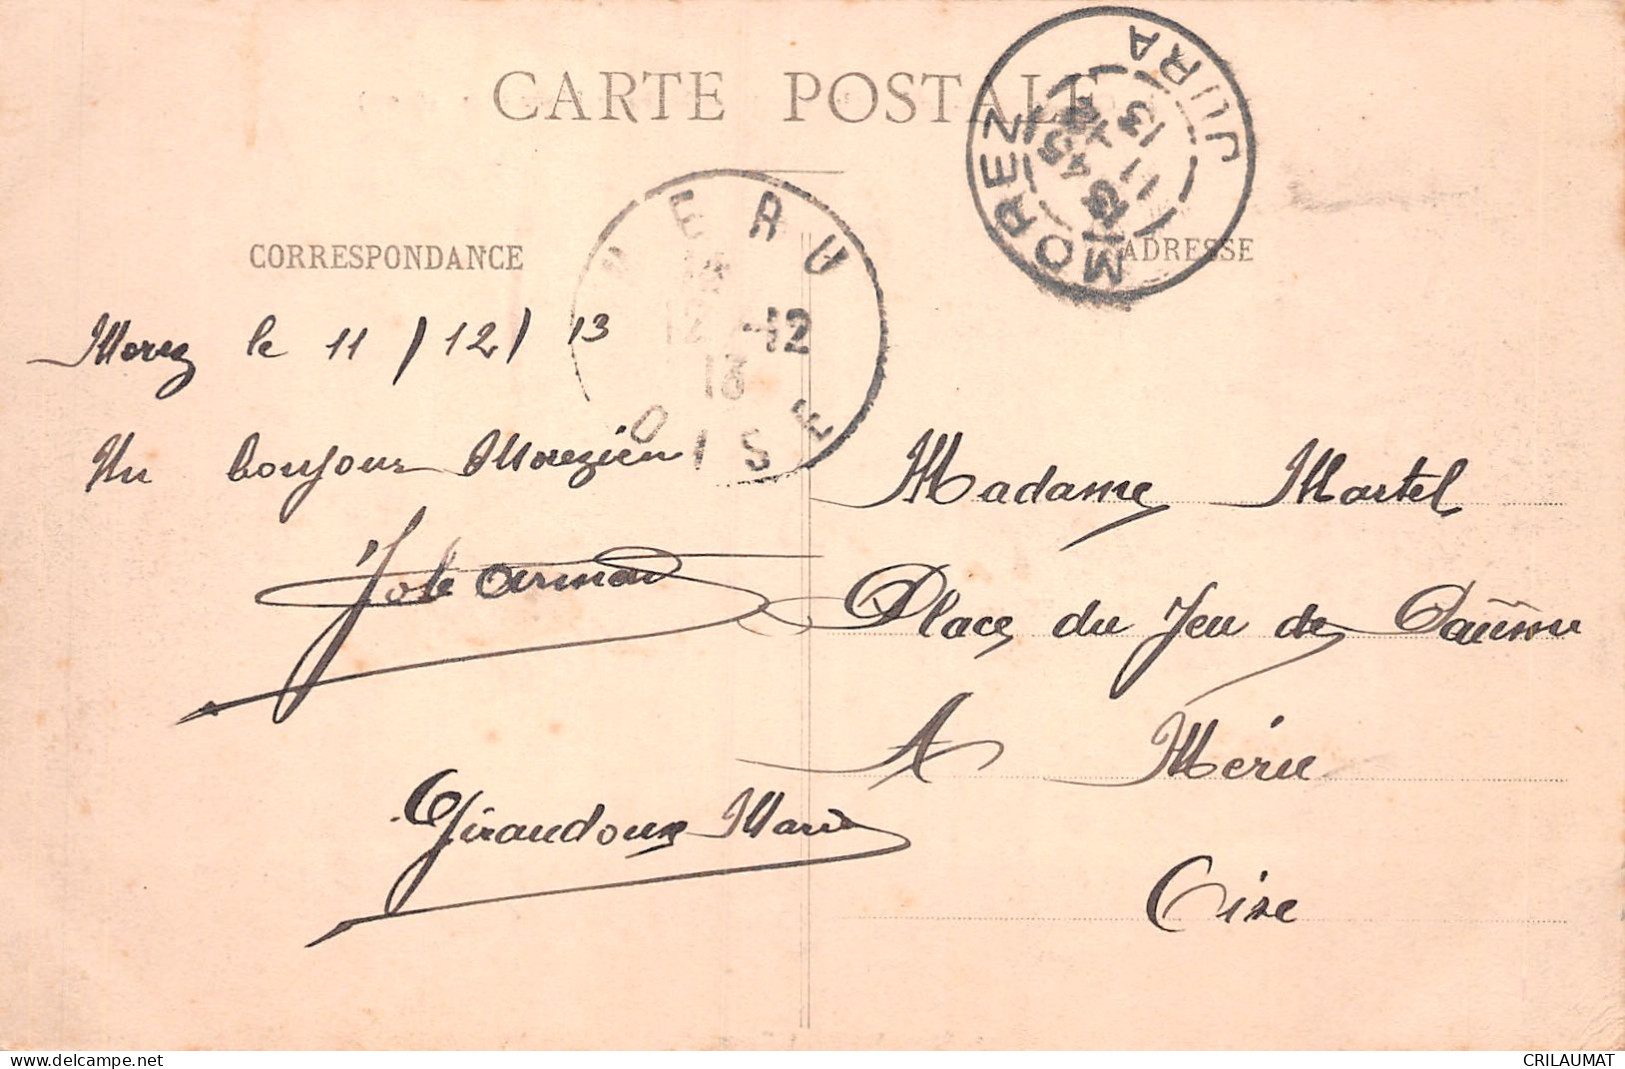 CARTE POSTALE
MOREZ
JURA
11 13
MERU
12 -12
13
OISE
CORRESPONDANCE
ADRESSE
Morez le 11 / 12 / 13
Un bonjour Morezien
Madame Martel
Place du Jeu de
A Méru
Giraudoux Marie
Oise
www.delcampe.net
CRILAUMAT